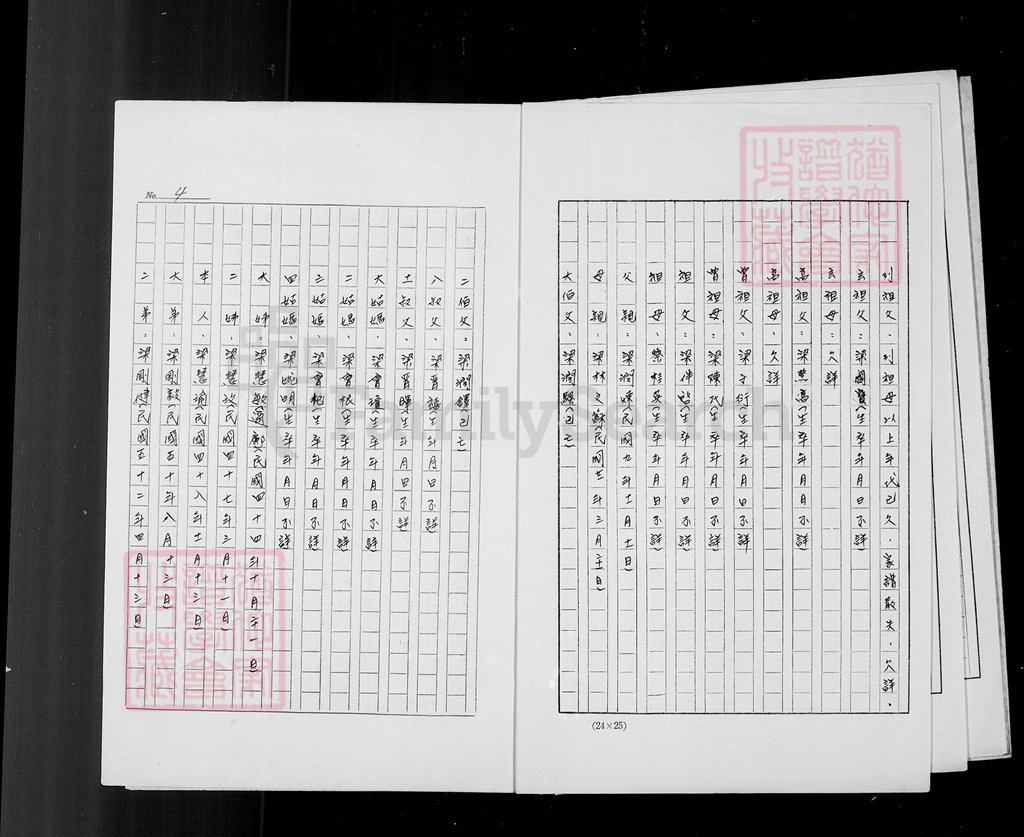 列祖父:列祖母以上年代已久,家譜散失,欠詳。
玄祖父:梁國賢(生卒年月日不詳)
玄祖母:欠詳
高祖父:梁 高(生卒年月日不詳)
高祖母:欠詳
曾祖父:梁 衍(生卒年月日不詳
曾祖母:梁陳氏(生卒年月日不詳)
祖 父:梁伴 (生卒年月日不詳)
祖 母: 桂 (生卒年月日不詳)
父 親:梁潤 (民國九年十二月十一日)
母 親:梁林 蘇(民國廿一年三月二十日)
大伯父:梁潤 (已亡)
No. 4
二伯父:梁潤 (已亡)
八叔父:梁 (生年月日不詳)
十一叔父:梁 (生年月日不詳)
大姑媽:梁會 (生卒年月日不詳)
二姑媽:梁會根(生卒年月日不詳)
三姑媽:梁會杞(生卒年月日不詳)
四姑媽:梁婉明(生卒年月日不詳)
大 姊:梁慧敏(適鄭)民國四十四年十月二十一日)
二 姊:梁慧 (民國四十七年三月十一日)
本 人:梁慧 (民國四十八年十一月十三日)
大 弟:梁剛毅(民國五十年八月十三日)
二 弟:梁剛健(民國五十二年四月十三日)
(24×25)
FamilySearch